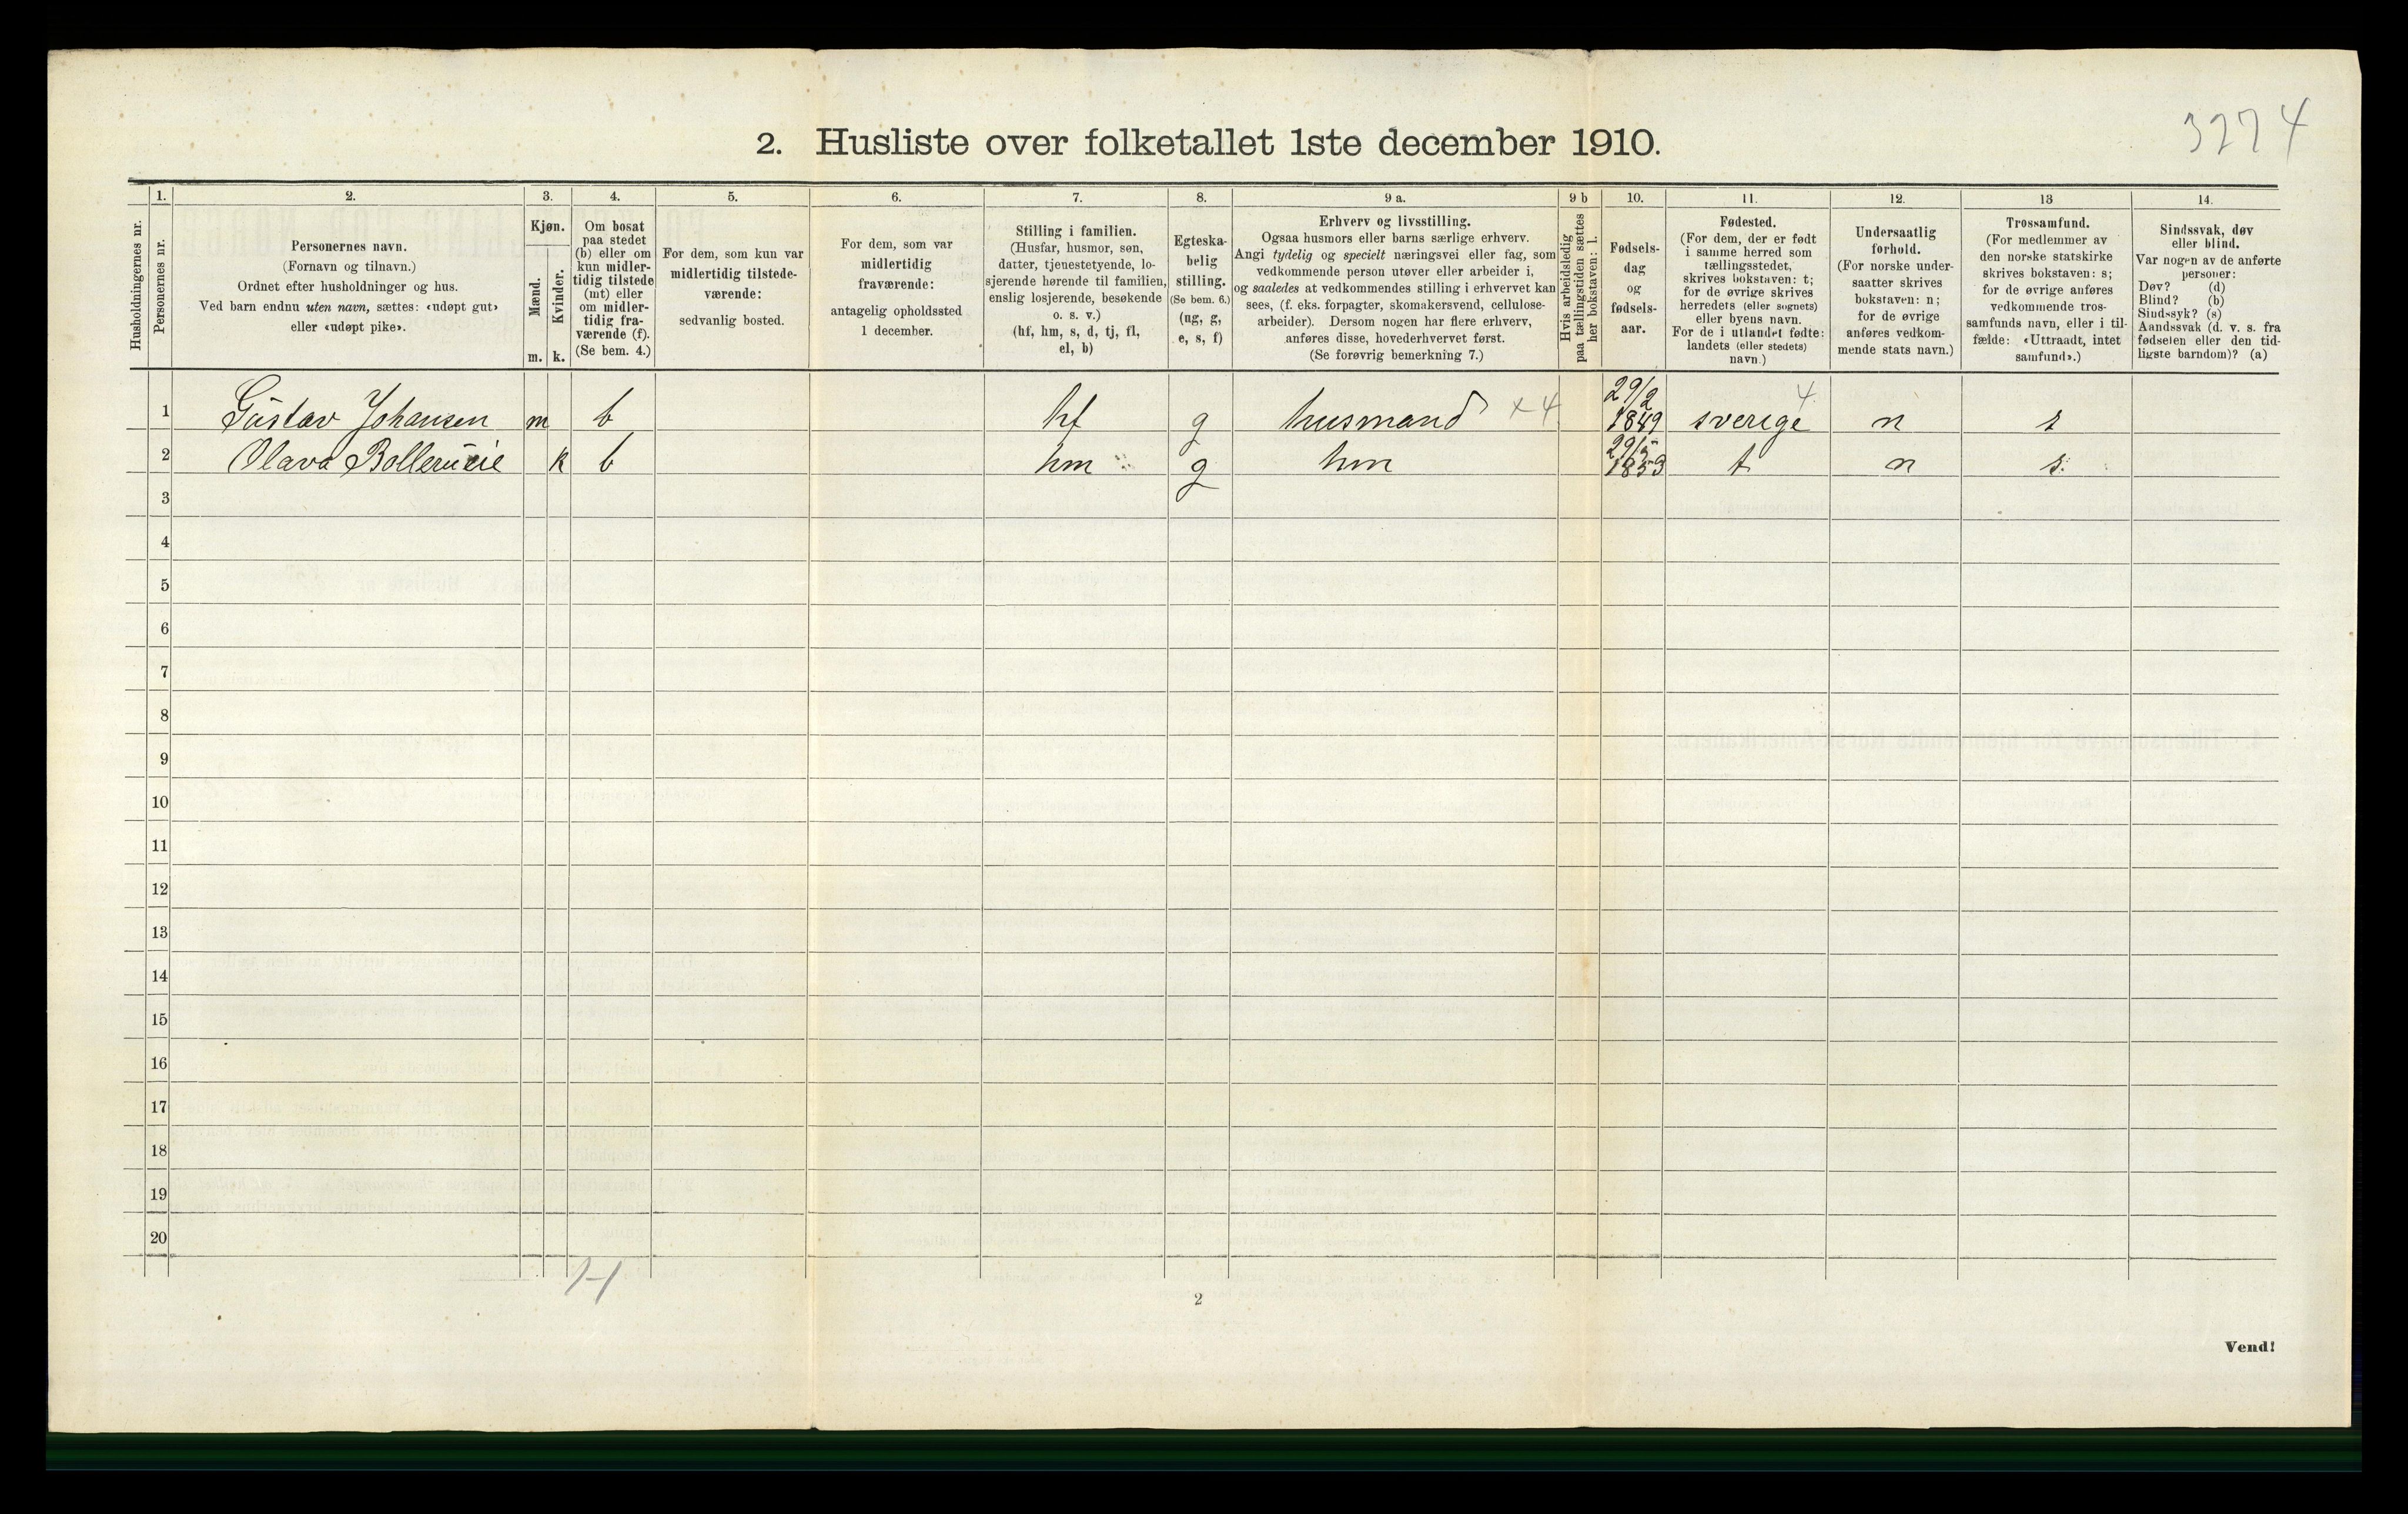 3274
2. Husliste over folketallet 1ste december 1910.
Husholdningernes nr.
1.
Personernes nr.
2.
Personernes navn.
(Fornavn og tilnavn.)
Ordnet efter husholdninger og hus.
Ved barn endnu uten navn, sættes: «udøpt gut»
eller «udøpt pike».
3.
Kjøn.
Mænd.
Kvinder.
m. k.
4.
Om bosat
paa stedet
(b) eller om
kun midler-
tidig tilstede
(mt) eller
om midler-
tidig fra-
værende (f).
(Se bem. 4.)
5.
For dem, som kun var
midlertidig tilstede-
værende:
sedvanlig bosted.
6.
For dem, som var
midlertidig
fraværende:
antagelig opholdssted
1 december.
7.
Stilling i familien.
(Husfar, husmor, søn,
datter, tjenestetyende, lo-
sjerende hørende til familien,
enslig losjerende, besøkende
o. s. v.)
(hf, hm, s, d, tj, fl,
el, b)
8.
Egteska-
belig
stilling.
(Se bem. 6.)
(ug, g,
e, s, f)
9 a.
Erhverv og livsstilling.
Ogsaa husmors eller barns særlige erhverv.
Angi tydelig og specielt næringsvei eller fag, som
vedkommende person utøver eller arbeider i,
og saaledes at vedkommendes stilling i erhvervet kan
sees, (f. eks. forpagter, skomakersvend, cellulose-
arbeider). Dersom nogen har flere erhverv,
anføres disse, hovederhvervet først.
(Se forøvrig bemerkning 7.)
9 b
Hvis arbeidsledig
paa tællingstiden sættes
her bokstaven: l.
10.
Fødsels-
dag
og
fødsels-
aar.
11.
Fødested.
(For dem, der er født
i samme herred som
tællingsstedet,
skrives bokstaven: t;
for de øvrige skrives
herredets (eller sognets)
eller byens navn.
For de i utlandet fødte:
landets (eller stedets)
navn.)
12.
Undersaatlig
forhold.
(For norske under-
saatter skrives
bokstaven: n;
for de øvrige
anføres vedkom-
mende stats navn.)
13
Trossamfund.
(For medlemmer av
den norske statskirke
skrives bokstaven: s;
for de øvrige anføres
vedkommende tros-
samfunds navn, eller i til-
fælde: «Uttraadt, intet
samfund».)
14.
Sindssvak, døv
eller blind.
Var nogen av de anførte
personer:
Døv? (d)
Blind? (b)
Sindssyk? (s)
Aandssvak (d. v. s. fra
fødselen eller den tid-
ligste barndom)? (a)
1 Gustav Johansen m b hf g husmand x 4 29/2 1849 sverige 4 n s
2 Olava Bollerueie k b hm g hm 29/5 1853 t n s
3
4
5
6
7
8
9
10
11
12
13
14
15
16
17
18
19
20
1-1
2
Vend!